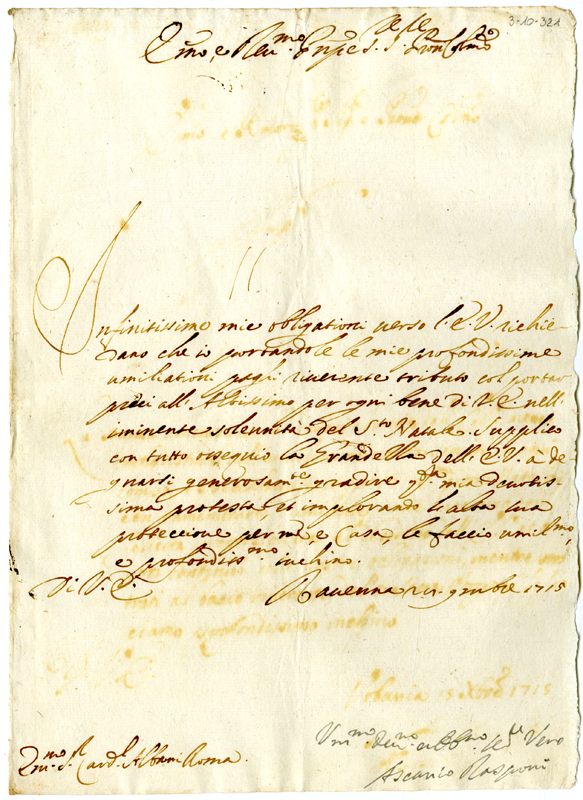 3-10-321
Em̃o, e Reu.mo Prñpe S.r S.r Pron Col.mo
Infinitissime mie obligationi uerso l'E.V. richie
dano che io portandole le mie profondissime
umiliationi paghi riuerente tributo col portar
preci all'Altissimo per ogni bene di V.E. nell'
imminente solennità del S.to Natale. Supplico
con tutto ossequio la Grandezza dell'E.V. à de
gnarsi generosam.te gradire q.sta mia deuotis
sima protesta, et implorando l'alta sua
protezzione per me, e Casa, le faccio umil.mo,
e profondiss.mo inchino.
Di V. E.
Rauenna 9mbre 1715
Em.mo S.r Card.l Albani Roma.
Um.mo Deu.mo et Obb.mo Se.re Vero
Ascanio Rasponi